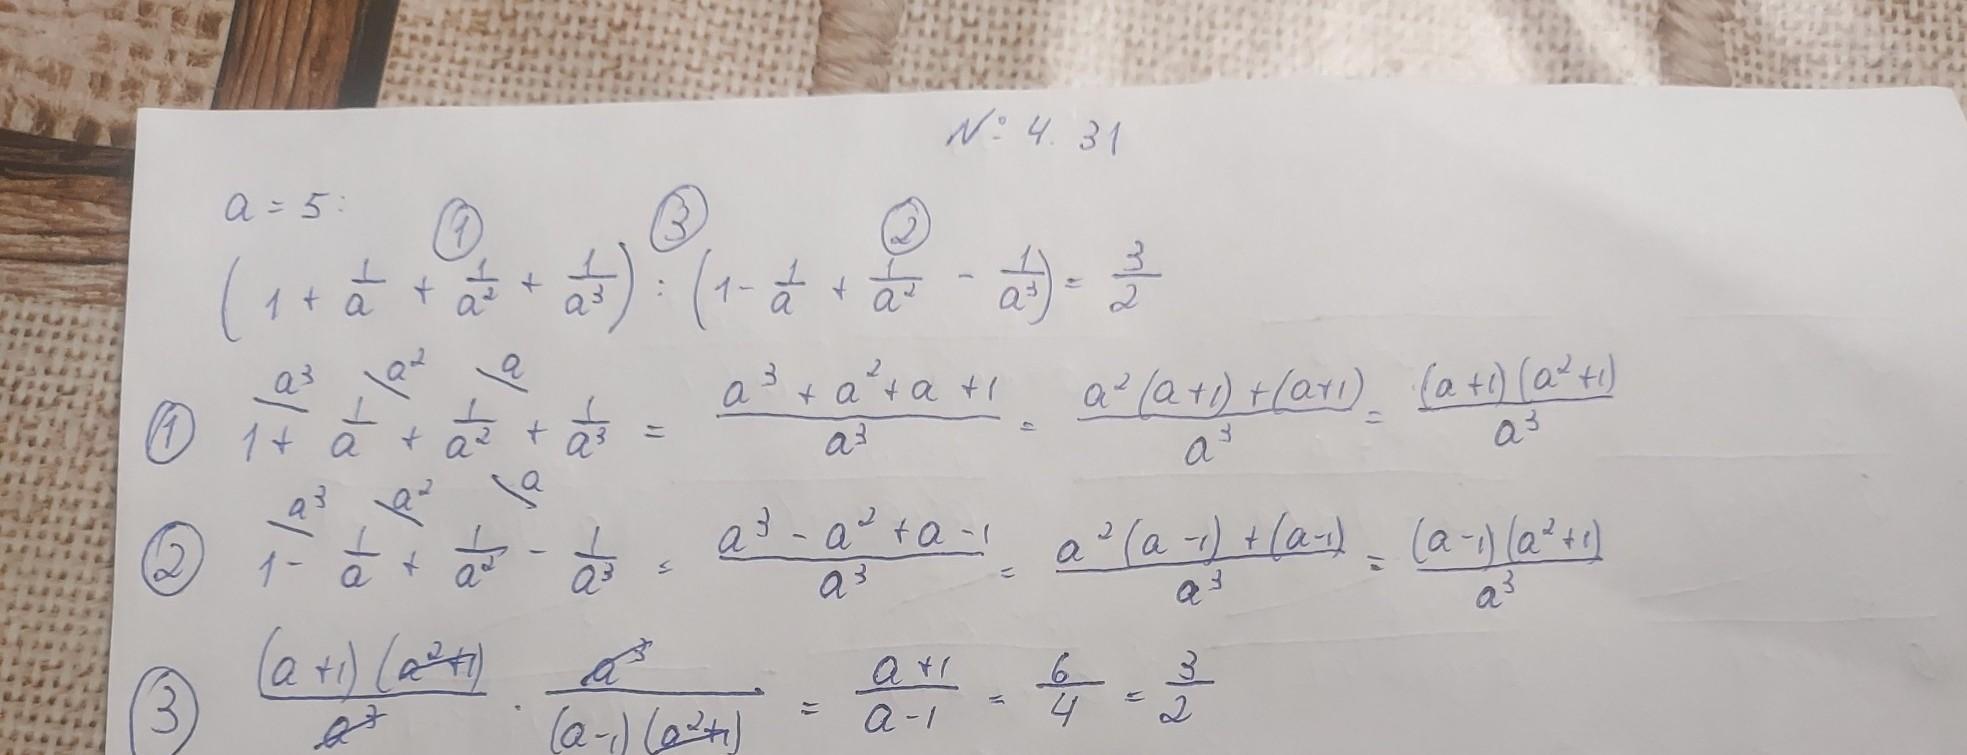 № 4. 31
a = 5:
① ③ ②
(1 + 1/a + 1/a² + 1/a³) : (1 - 1/a + 1/a² - 1/a³) = 3/2
a³ a² a
① 1 + 1/a + 1/a² + 1/a³ = (a³ + a² + a + 1)/a³ = (a²(a+1) + (a+1))/a³ = ((a+1)(a²+1))/a³
a³ a² a
② 1 - 1/a + 1/a² - 1/a³ = (a³ - a² + a - 1)/a³ = (a²(a-1) + (a-1))/a³ = ((a-1)(a²+1))/a³
③ ((a+1)(a²+1))/a³ · a³/((a-1)(a²+1)) = (a+1)/(a-1) = 6/4 = 3/2